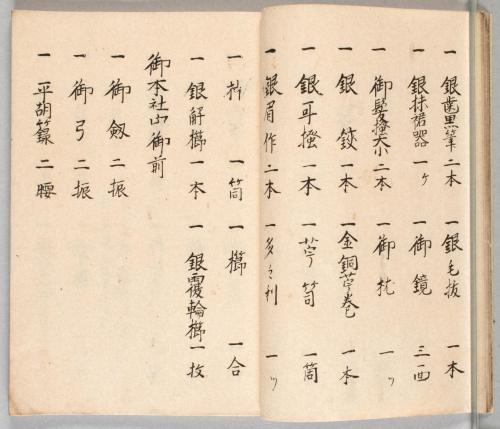 一 銀歯黒筆 二本 一 銀毛抜 一本
一 銀抹裙器 一ケ 一 御鏡 三面
一 御髪掻大小 二本 一 御枕 一ツ
一 銀鋏 一本 一 金銅苧巻 一本
一 銀耳掻 一本 一 苧笥 一箇
一 銀眉作 二本 一 多々利 一ツ
一 一筒 一 櫛 一合
一 銀解櫛 一本 一 銀覆輪櫛 一枚
御本社四御前
一 御劔 二振
一 御弓 二振
一 平胡籙 二腰